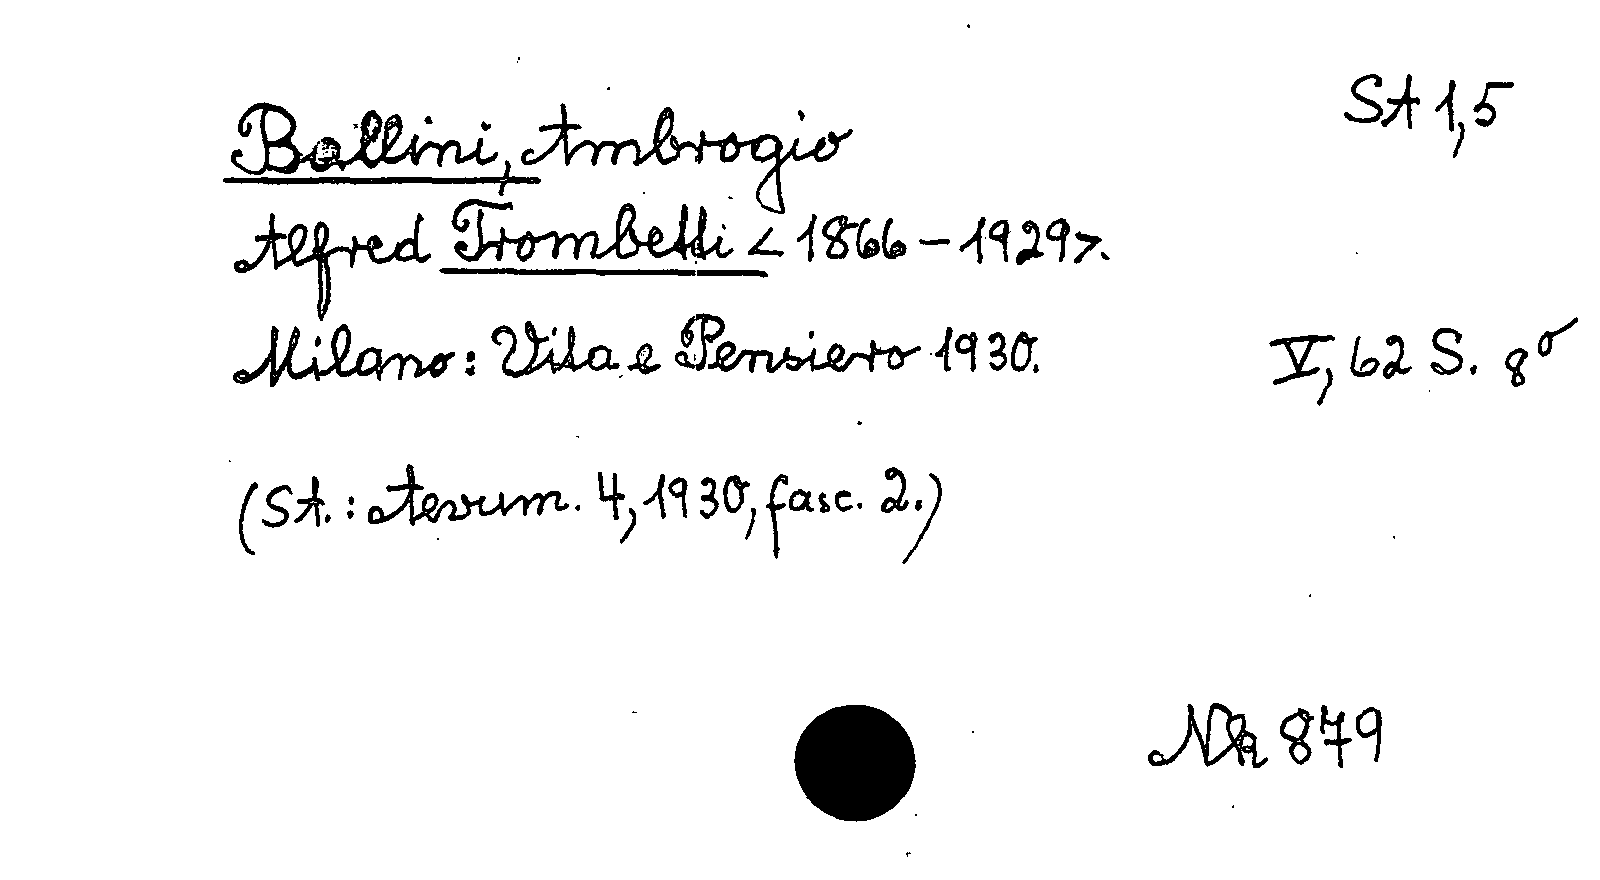 St 1,5
Ballini, Ambrogio
Alfred Trombetti < 1866 – 1929>.
Milano: Vita e Pensiero 1930. V, 62 S. 8°
(St.: Aevum. 4, 1930, fasc. 2.)
Nk 879